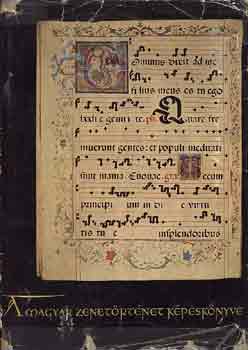 Dominus dixit ad me
fi lius meus es tu ego
hodi e genui te. ps. Quare fre
muerunt gentes: et populi meditati
sunt inania Euouae. gra. Tecum
principi um in di e virtu
tis tu e in splendoribus
A MAGYAR ZENETÖRTÉNET KÉPESKÖNYVE